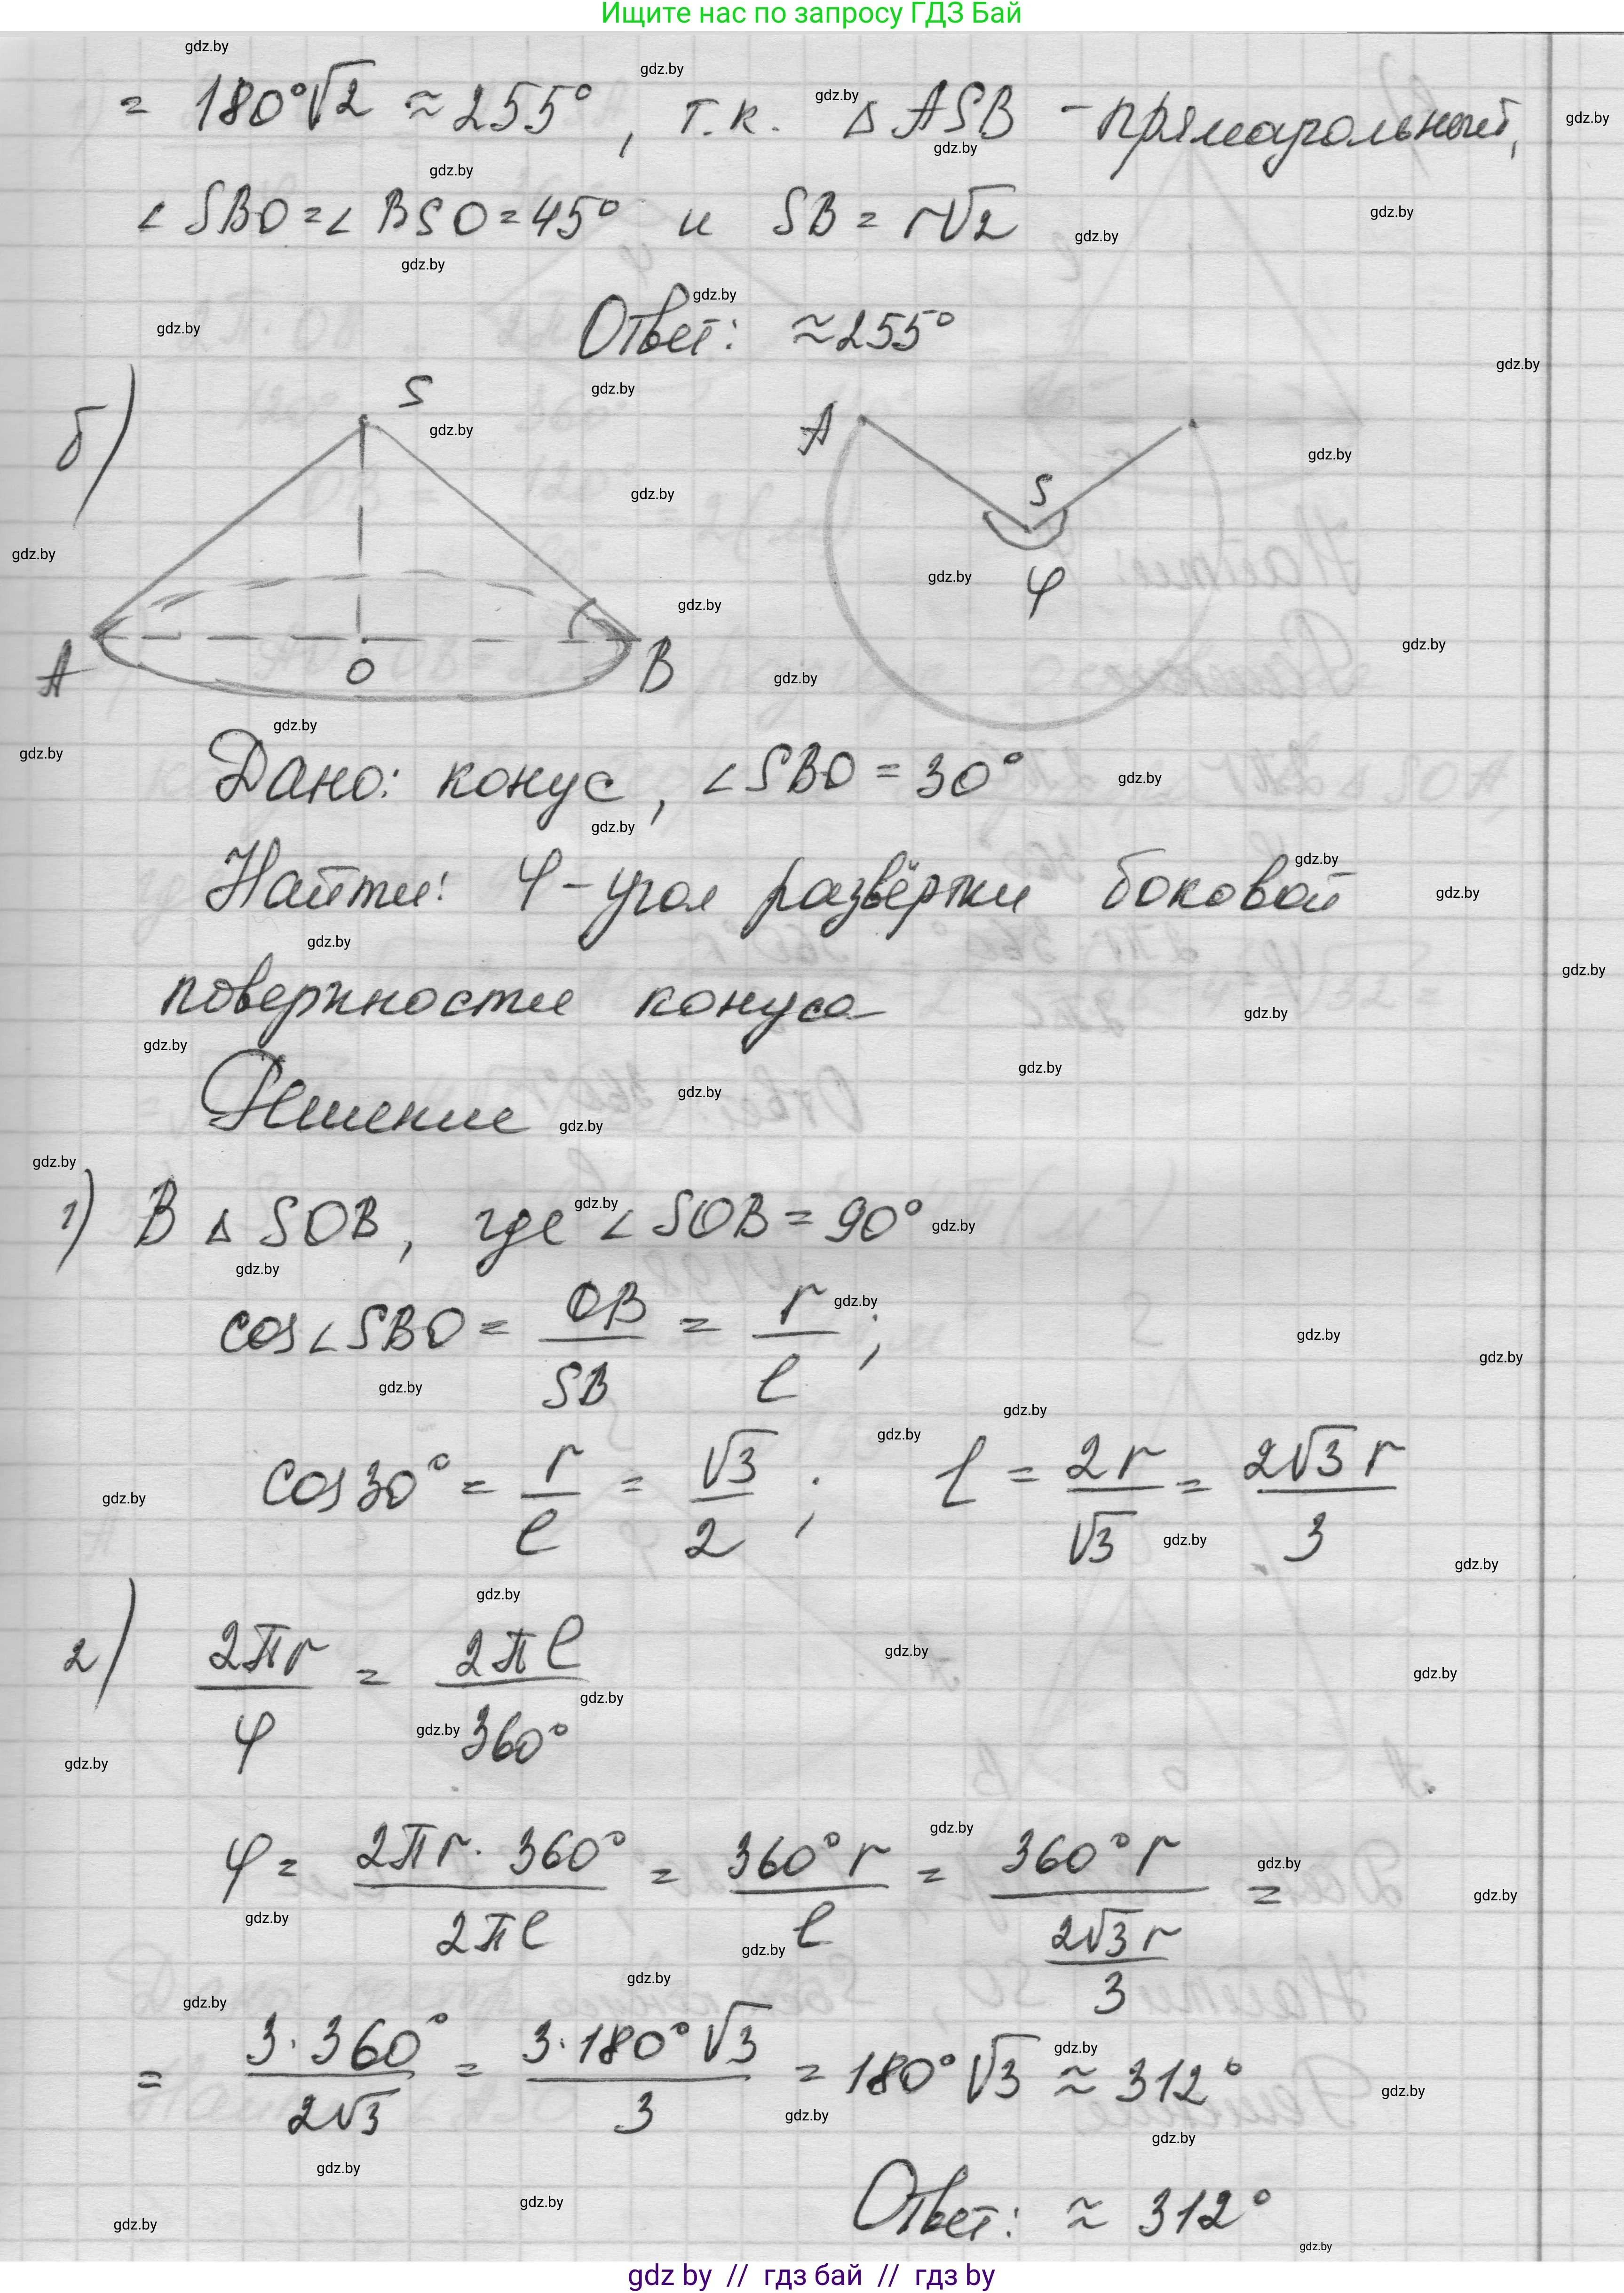 Ищите нас по запросу ГДЗ Бай
= 180°√2 ≈ 255°, т.к. Δ ASB - прямоугольный,
∠ SBO = ∠ BSO = 45° и SB = r√2
Ответ: ≈ 255°
б)
S
A
O
B
A
S
φ
Дано: конус, ∠SBO = 30°
Найти: φ - угол развёртки боковой
поверхности конуса
Решение
1) В Δ SOB, где ∠ SOB = 90°
cos∠SBO = OB/SB = r/l;
cos30° = r/l = √3/2; l = 2r/√3 = 2√3 r/3
2) 2πr/φ = 2πl/360°
φ = 2πr · 360°/2πl = 360° r/l = 360° r/(2√3 r/3) =
= 3 · 360°/2√3 = 3 · 180° √3/3 = 180° √3 ≈ 312°
Ответ: ≈ 312°
gdz by // гдз бай // гдз by